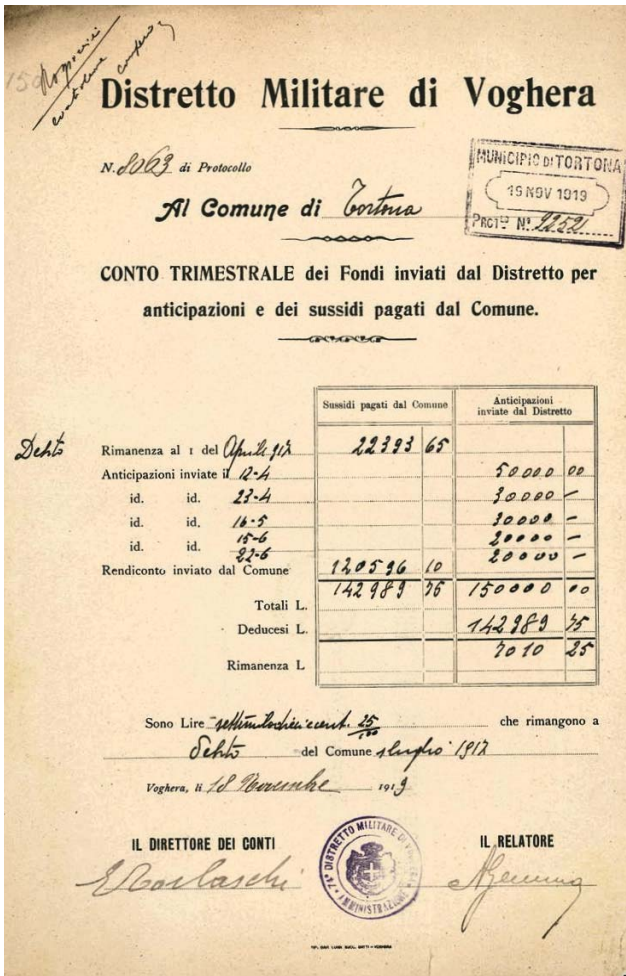 Distretto Militare di Voghera
N. 8063 di Protocollo
MUNICIPIO DI TORTONA
19 NOV 1919
PROT° N° 2252
Al Comune di Tortona
CONTO TRIMESTRALE dei Fondi inviati dal Distretto per
anticipazioni e dei sussidi pagati dal Comune.
Sussidi pagati dal Comune Anticipazioni inviate dal Distretto
Debito Rimanenza al 1 del Aprile 917 22393 65
Anticipazioni inviate il 12-4 50000 00
id. id. 23-4 30000 —
id. id. 16-5 30000 —
id. id. 15-6 20000 —
22-6 20000 —
Rendiconto inviato dal Comune 120596 10
Totali L. 142989 75 150000 00
Deducesi L. 142989 75
Rimanenza L 7010 25
Sono Lire settemiladieci cent. 25/100 che rimangono a
debito del Comune 1 luglio 1917
Voghera, li 18 Novembre 1919
IL DIRETTORE DEI CONTI IL RELATORE
74° DISTRETTO MILITARE DI VOGHERA
AMMINISTRAZIONE